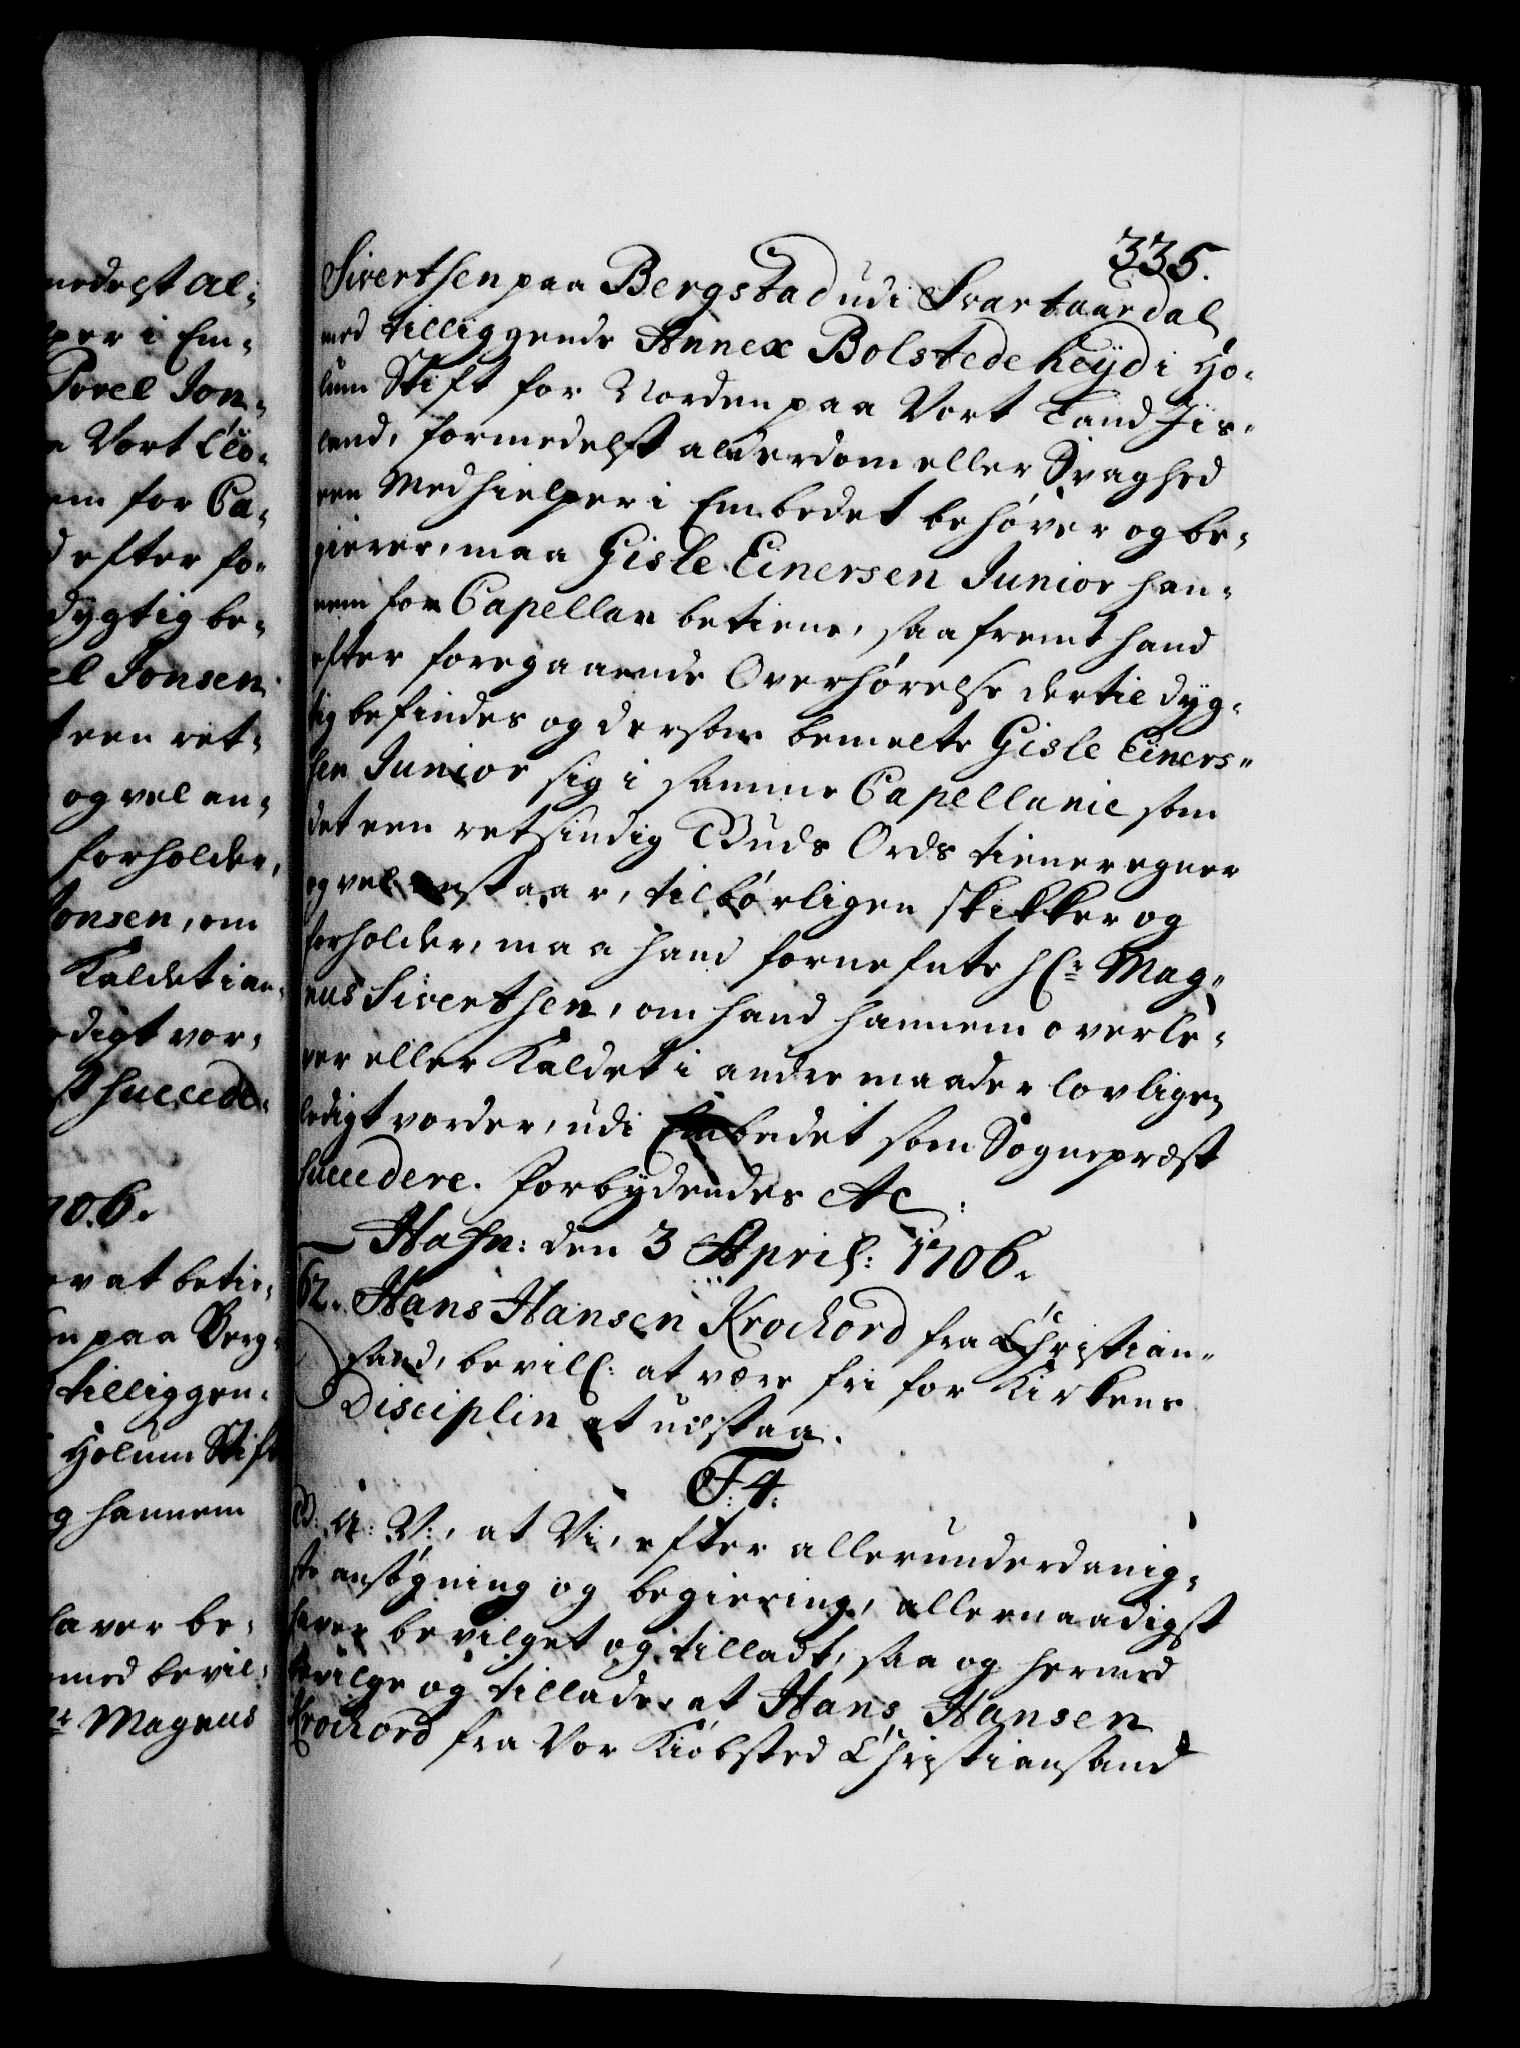 medelst al-
per i Em-
Povel Jon-
n Vort Clö-
em for Ca-
d efter fo-
dygtig be-
el Jonsen
t een ret-
og vel an-
forholder,
Jonsen, om
Kaldet i an-
edigt vor-
st succede-
706.
ver at betie-
en paa Berg-
tilliggen-
Holum Stift
g hannem
haver be-
med bevil-
Hr Magnus
335.
Siverthsen paa Bergstad udi Svartaardal
med tilliggende Annex Bolstedehøyd i Ho-
lum Stift for Norden paa Vort Land Jis-
land, formedelst alderdom eller Svaghed
een Medhielper i Embedet behøver og be-
gierer, maa Gisle Einersen Junior han-
nem for Capellan betiene, saafremt hand
efter foregaaende Overhørelse dertil dyg-
tig befindes og dersom bemelte Gisle Einers-
sen Junior sig i samme Capellanie som
det een retsindig Guds Ords tiener egner
og vel anstaar, tilbørligen skikker og
forholder, maa hand fornefnte Hr Mag-
nus Siverthsen, om hand hannem overle-
ver eller Kaldet i andre maader lovligen
ledigt vorder, udi Embedet som Sognepræst
succedere. Forbydendes etc:
Hafn: den 3 April: 1706.
62. Hans Hansen Krochord fra Christian-
sand, bevill: at være fri for Kirkens
Disciplin at udstaa.
F: 4:
G: A: V:, at Vi, efter allerunderdanig-
ste ansøgning og begiering, allernaadigst
haver bevilget og tilladt, saa og hermed
bevilge og tillade, at Hans Hansen
Krochord fra Vor Kiøbsted Christiansand